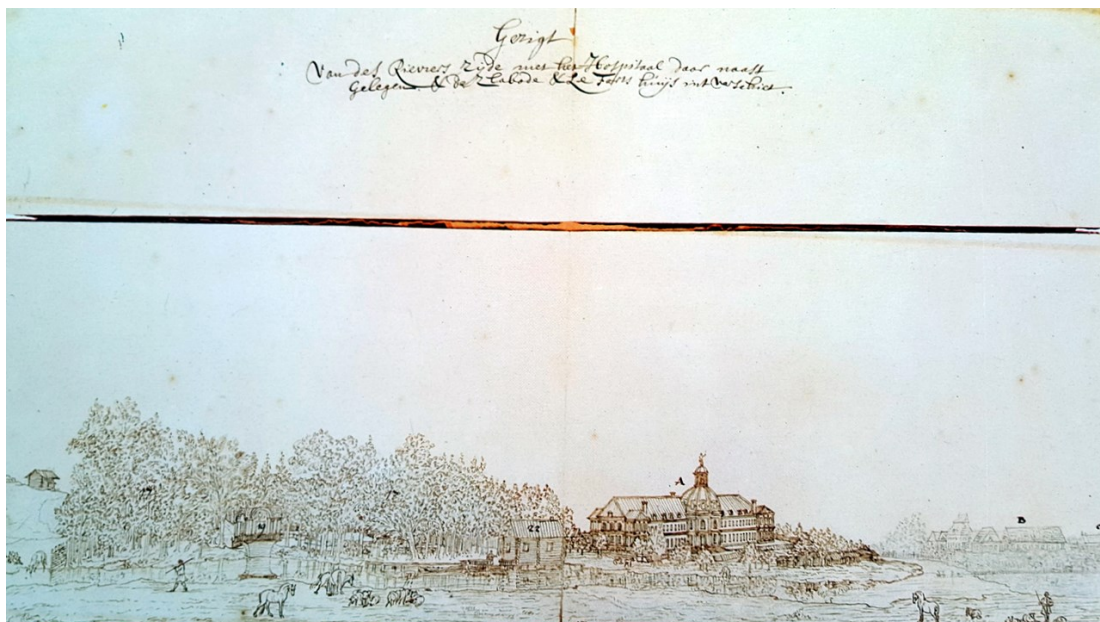 Gezigt
Van des Rieviers zyde met het Hospitaal daar naast
gelegen & de Slabode & Le Forts huijs int verschiet.
A
B
22